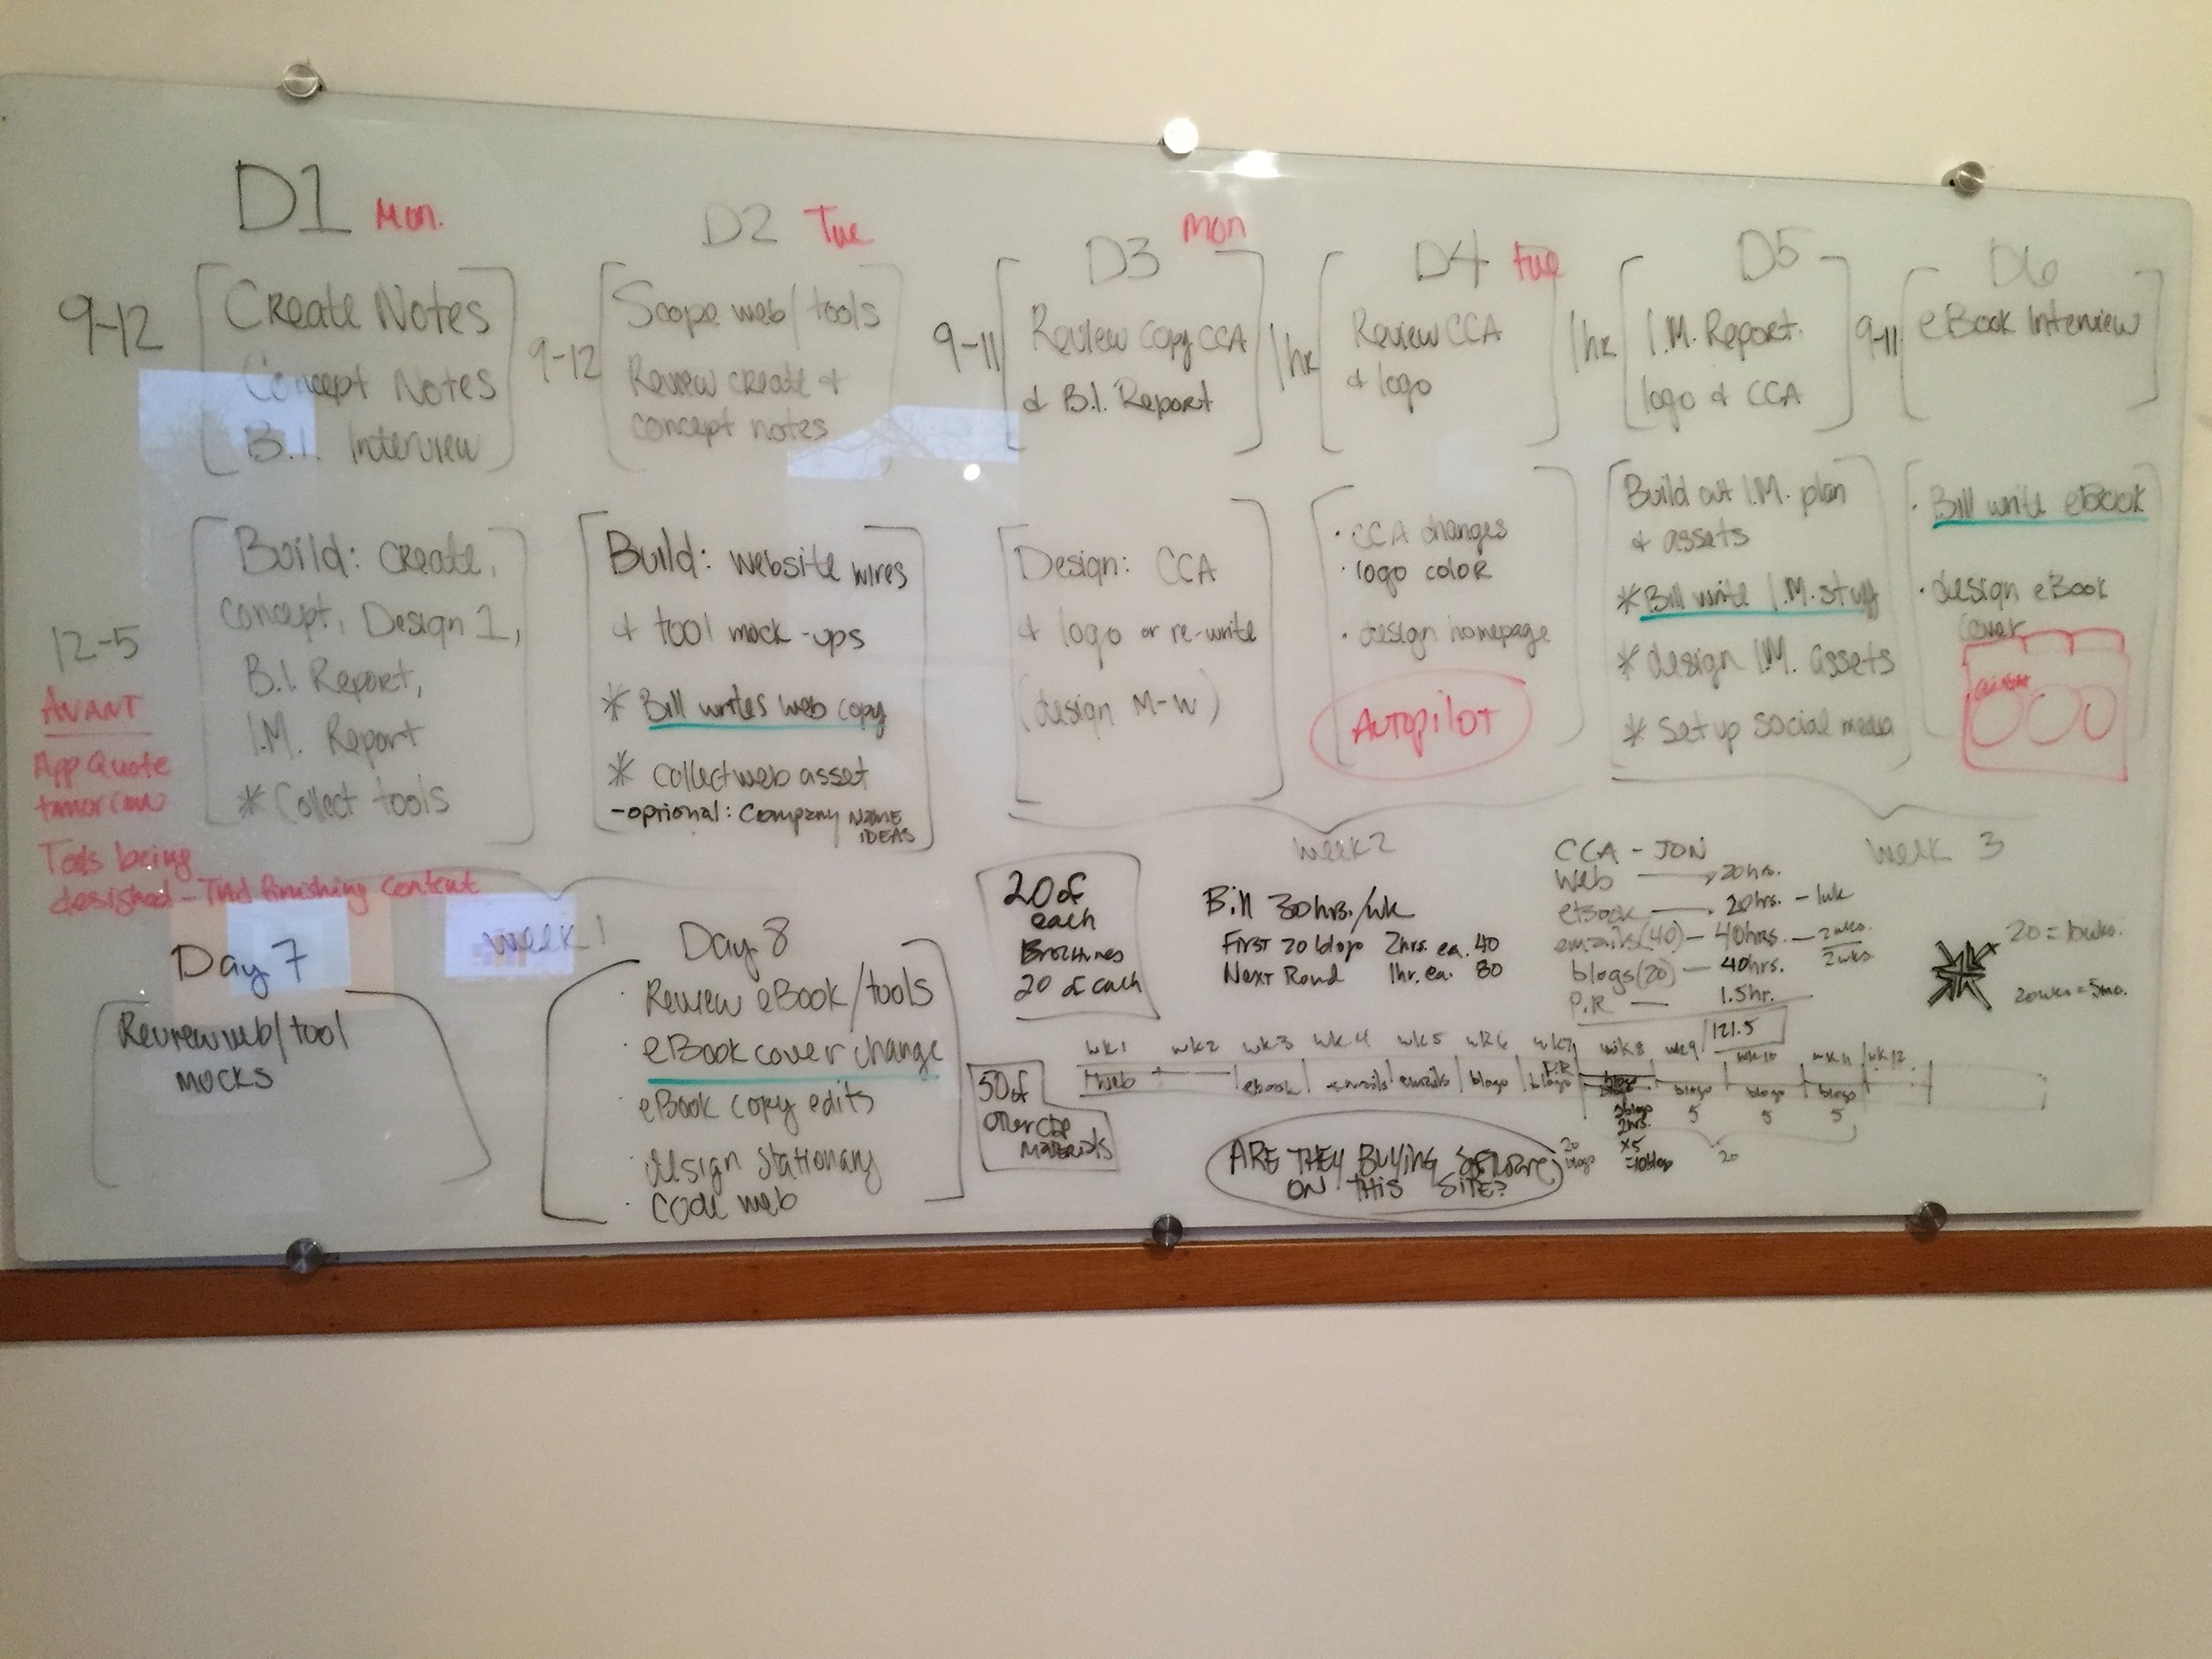 D1 Mon.
9-12
Create Notes
Concept Notes
B.I. Interview
D2 Tue
9-12
Scope web/tools
Review create &
concept notes
D3 mon
9-11
Review Copy CCA
& B.I. Report
D4 tue
1hr
Review CCA
& logo
D5
1hr
I.M. Report.
logo & CCA
D6
9-11
eBook Interview
12-5
Build: create,
concept, Design 1,
B.I. Report,
I.M. Report
* Collect tools
Build: website wires
& tool mock-ups
* Bill writes web copy
* Collect web asset
- optional: Company NAME
IDEAS
Design: CCA
& logo or re-write
(design M-W)
· CCA changes
· logo color
· design homepage
AUTOPILOT
Build out I.M. plan
& assets
* Bill write I.M. stuff
* design I.M. assets
* Set up social media
· Bill write eBook
· design eBook
cover
AVANT
App Quote
tomorrow
Tools being
designed - finishing content
week 1
week 2
week 3
Day 7
Review web/tool
mocks
Day 8
· Review eBook/tools
· eBook cover change
· eBook copy edits
· design stationary
· Code web
20 of
each
Brochures
20 of each
50 of
other
materials
Bill 30hrs./wk
First 20 blogs 2hrs. ea. 40
Next Round 1hr. ea. 80
CCA - JON
Web 20hrs.
eBook 20hrs. - 1wk
emails(40) - 40hrs. - 2wks.
blogs(20) - 40hrs. 2wks
P.R - 1.5hr.
121.5
20wks = 5mo.
wk1 wk2 wk3 wk4 wk5 wk6 wk7 wk8 wk9 wk10 wk11 wk12
web ebook emails emails blogs blogs P.R blogs blogs blogs
5 5 5
2hrs.
x5
=10blogs
20
blogs
20
ARE THEY BUYING SOFTWARE
ON THIS SITE?